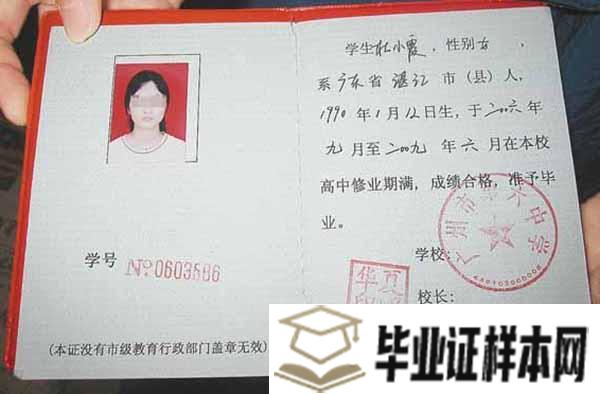 学生杜小霞，性别女，
系广东省湛江市（县）人，
1990年1月12日生，于二00六年
九月至二00九年六月在本校
高中修业期满，成绩合格，准予毕
业。
学校：
校长：
学号 №0603586
（本证没有市级教育行政部门盖章无效）
毕业证样本网